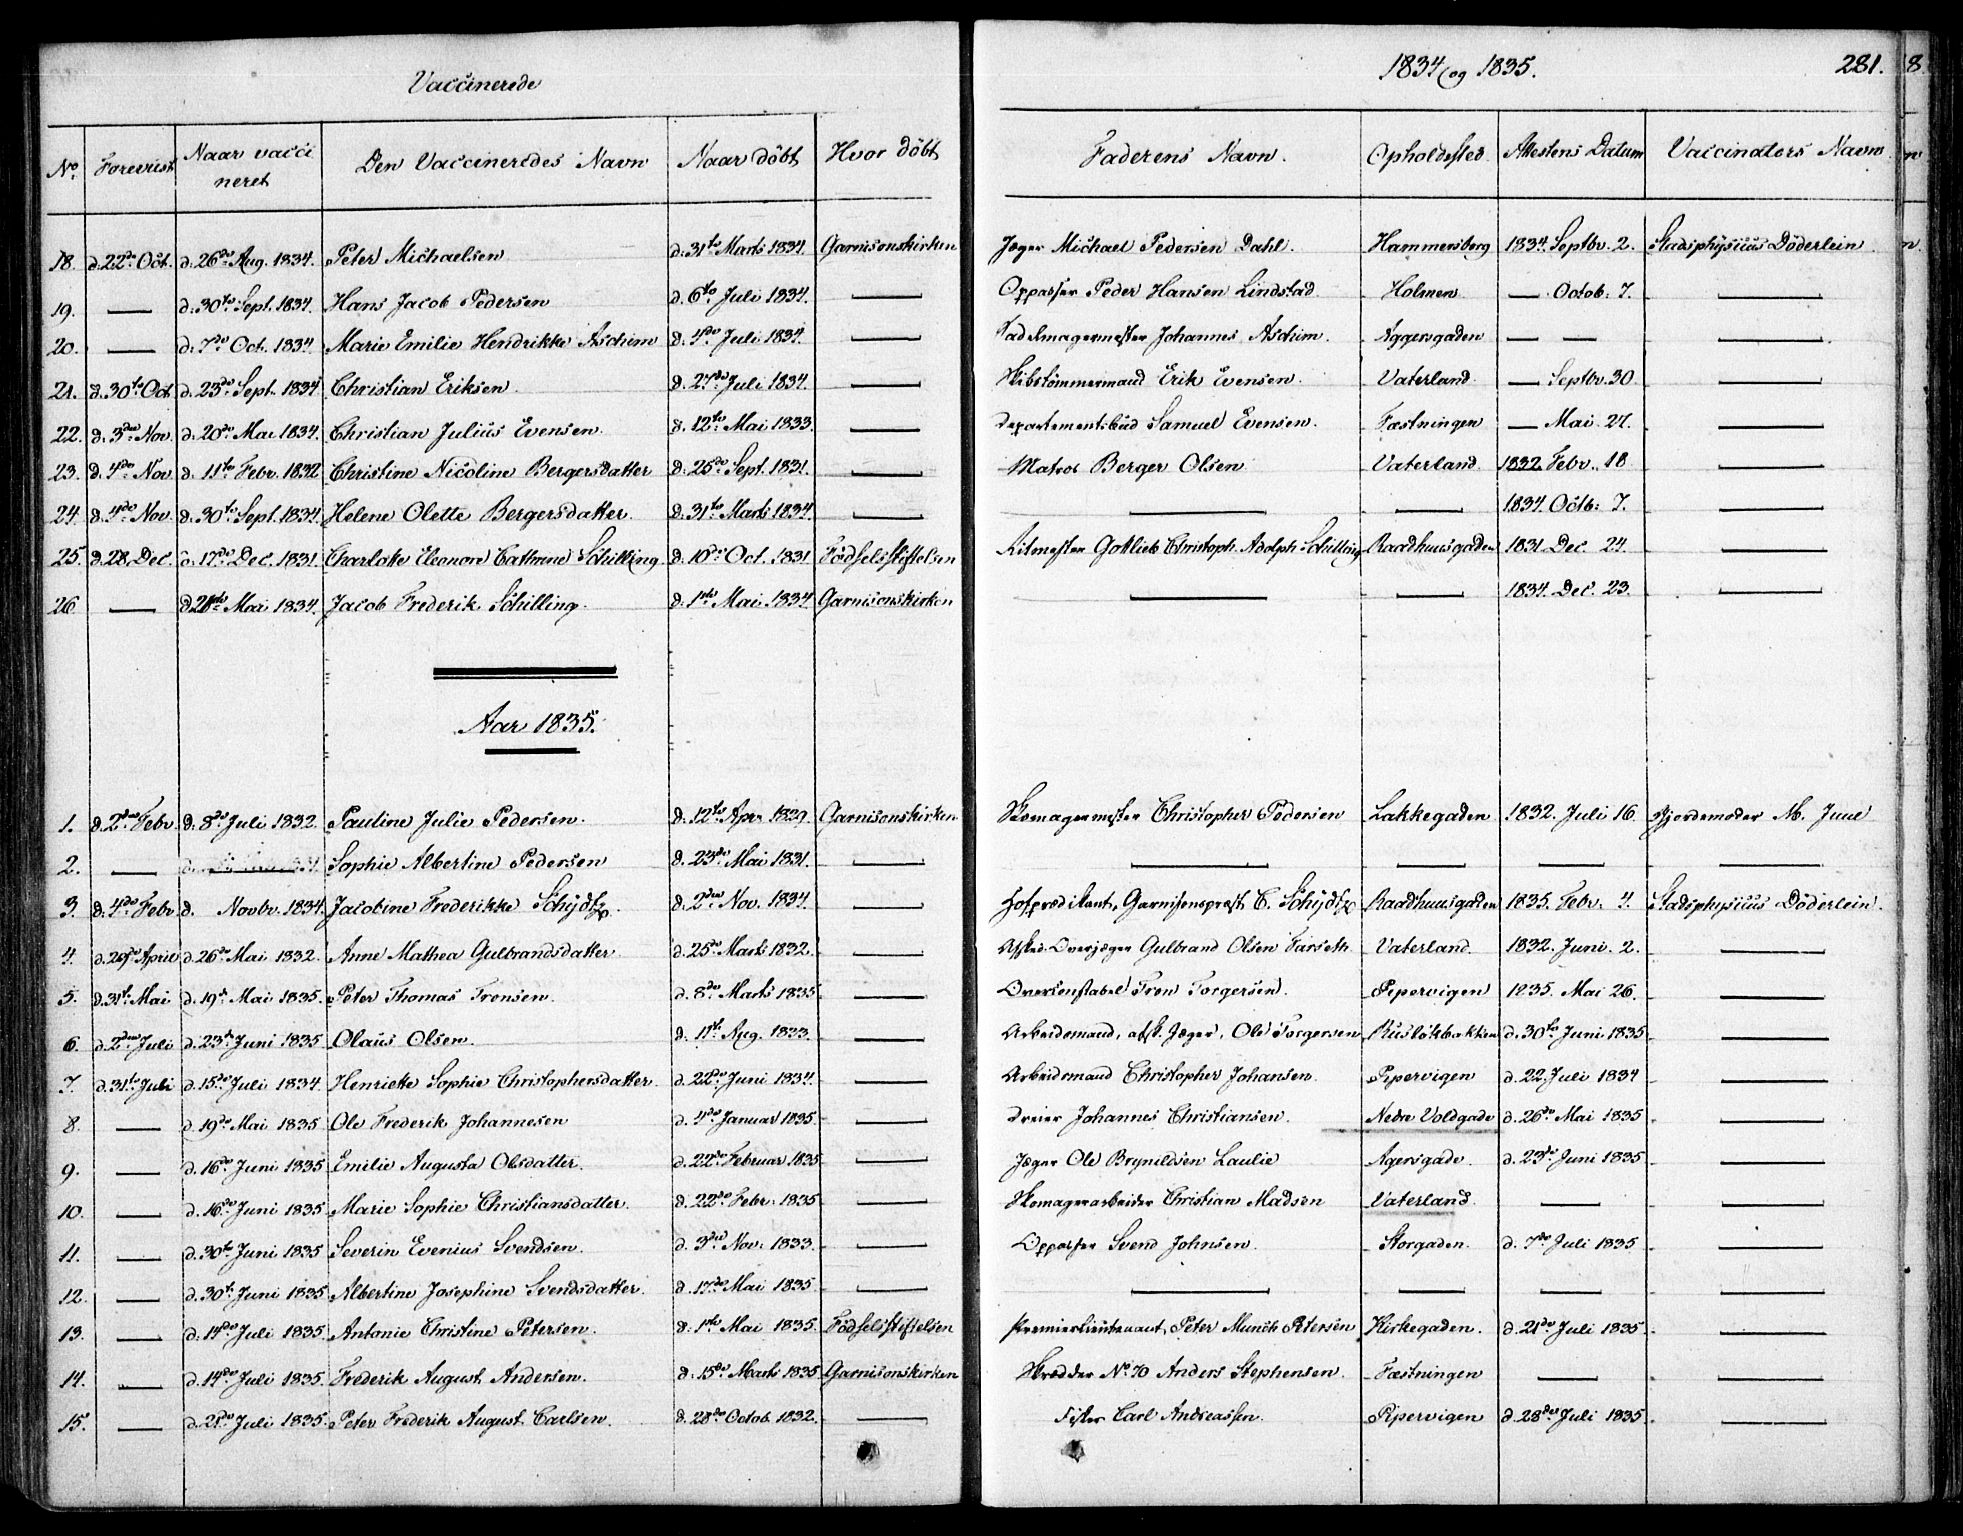 Vaccinerede
1834 og 1835. 281.
No. Forevist Naar vacci neret Den Vaccineredes Navn Naar döbt Hvor döbt Faderens Navn. Opholdssted. Attestens Datum Vaccinators Navn
18. d. 22de Oct. d. 26de Aug. 1834. Peter Michaelsen d. 31te Marts 1834. Garnisonskirken Jæger Michael Pedersen Dahl. Hammersberg 1834. Septbr. 2. Stadsphysicus Döderlein
19. — d. 30te Sept. 1834. Hans Jacob Pedersen d. 6te Juli 1834. — Oppasser Peder Hansen Lindstad. Holmen — Octob. 7. —
20. — d. 7de Oct. 1834. Marie Emilie Hendrikke Aschim d. 4de Juli 1834. — Sadelmagermester Johannes Aschim. Aggersgaden — — —
21. d. 30te Oct d. 23de Sept. 1834 Christian Eriksen. d. 27de Juli 1834. — Skibstömmermand Erik Evensen. Vaterland — Septbr. 30 —
22. d. 3die Nov. d. 20de Mai 1834. Christian Julius Evensen. d. 12te Mai 1833. — Departementsbud Samuel Evensen. Fæstningen — Mai 27. —
23. d. 4de Nov d. 11te Febr. 1832 Christine Nicoline Bergersdatter d. 25de Sept. 1831. — Matros Berger Olsen Vaterland 1832. Febr. 18 —
24. d. 4de Nov. d. 30te Sept. 1834. Helene Olette Bergersdatter. d. 31te Marts 1834. — — — 1834. Octb: 7. —
25. d. 28 Dec. d. 17de Dec. 1831. Charlotte Eleonore Cathrine Schilling d. 10de Oct. 1831 Födselsstiftelsen Ritmester Gottlieb Christoph Adolph Schilling Raadhuusgaden 1831. Dec. 24. —
26 — Mai 1834. Jacob Frederik Schilling. d. 1ste Mai 1834 Garnisonskirken — — 1834. Dec. 23. —
Aar 1835.
1. d. 2den Febr d. 8de Juli 1832. Pauline Julie Pedersen. d. 12te Apr. 1829. Garnisonskirken Skomagermester Christopher Pedersen Lakkegaden 1832. Juli 16. Gjordemoder M. Juul
2. — — Sophie Albertine Pedersen d. 23de Mai 1831. — — — — —
3. d. 4de Febr d. Novbr. 1834. Jacobine Frederikke Schydtz. d. 2den Nov. 1834. — Hofprædikant, Garnisonspræst C. Schydtz Raadhuusgaden 1835. Febr. 4. Stadsphysicus Döderlein.
4. d. 29de April d. 26de Mai 1832. Anne Mathea Gulbrandsdatter. d. 25de Marts 1832. — Afsked. Overjæger Gulbrand Olsen Farseth Vaterland. 1832. Juni. 2. —
5. d. 31te Mai d. 19de Mai 1835. Peter Thomas Tronsen. d. 8de Marts 1835. — Overconstabel Tron Torgersen. Pipervigen 1835. Mai 26. —
6. d. 2den Juli d. 23de Juni 1835 Olaus Olsen. d. 11te Aug. 1833. — Arbeidsmand, afsk. Jæger, Ole Torgersen Ruslökbakken d. 30te Juni 1835 —
7. d. 31te Juli d. 15de Juli 1834. Henriette Sophie Christophersdatter. d. 22de Juni 1834. — Arbeidsmand Christopher Johansen. Pipervigen d. 22 Juli 1834 —
8. — d. 19de Mai 1835 Ole Frederik Johannesen d. 4de Januar 1835. — Dreier Johannes Christiansen. Nedre Voldgade d. 26de Mai 1835 —
9. — d. 16de Juni 1835 Emilie Augusta Olsdatter. d. 22de Februar 1835 — Jæger Ole Brynildsen Laulie Agersgade. d. 23de Juni 1835 —
10. — d. 16de Juni 1835 Marie Sophie Christiansdatter. d. 22de Febr. 1835 — Skomagerarbeider Christian Madsen Vaterland. — —
11. — d. 30te Juni 1835 Severin Evenius Svendsen. d. 3die Nov. 1833. — Oppasser Svend Johnsen. Storgaden. d. 7de Juli 1835 —
12. — d. 30te Juni 1835 Albertine Josephine Svendsdatter. d. 17de Mai 1835. — — — — —
13. — d. 14de Juli 1835. Antonie Christine Petersen. d. 1ste Mai 1835. Födselsstiftelsen Premierlieutenant Peter Munch Petersen Kirkegaden. d. 21de Juli 1835 —
14. — d. 14de Juli 1835. Frederik August Andersen. d. 15de Marts 1835 Garnisonskirken Skrædder No. 70 Anders Stephensen. Fæstningen — —
15. — d. 21de Juli 1835. Peter Frederik August Carlsen. d. 28de Octob. 1832. — Fisker Carl Andreassen. Pipervigen d. 28de Juli 1835. —